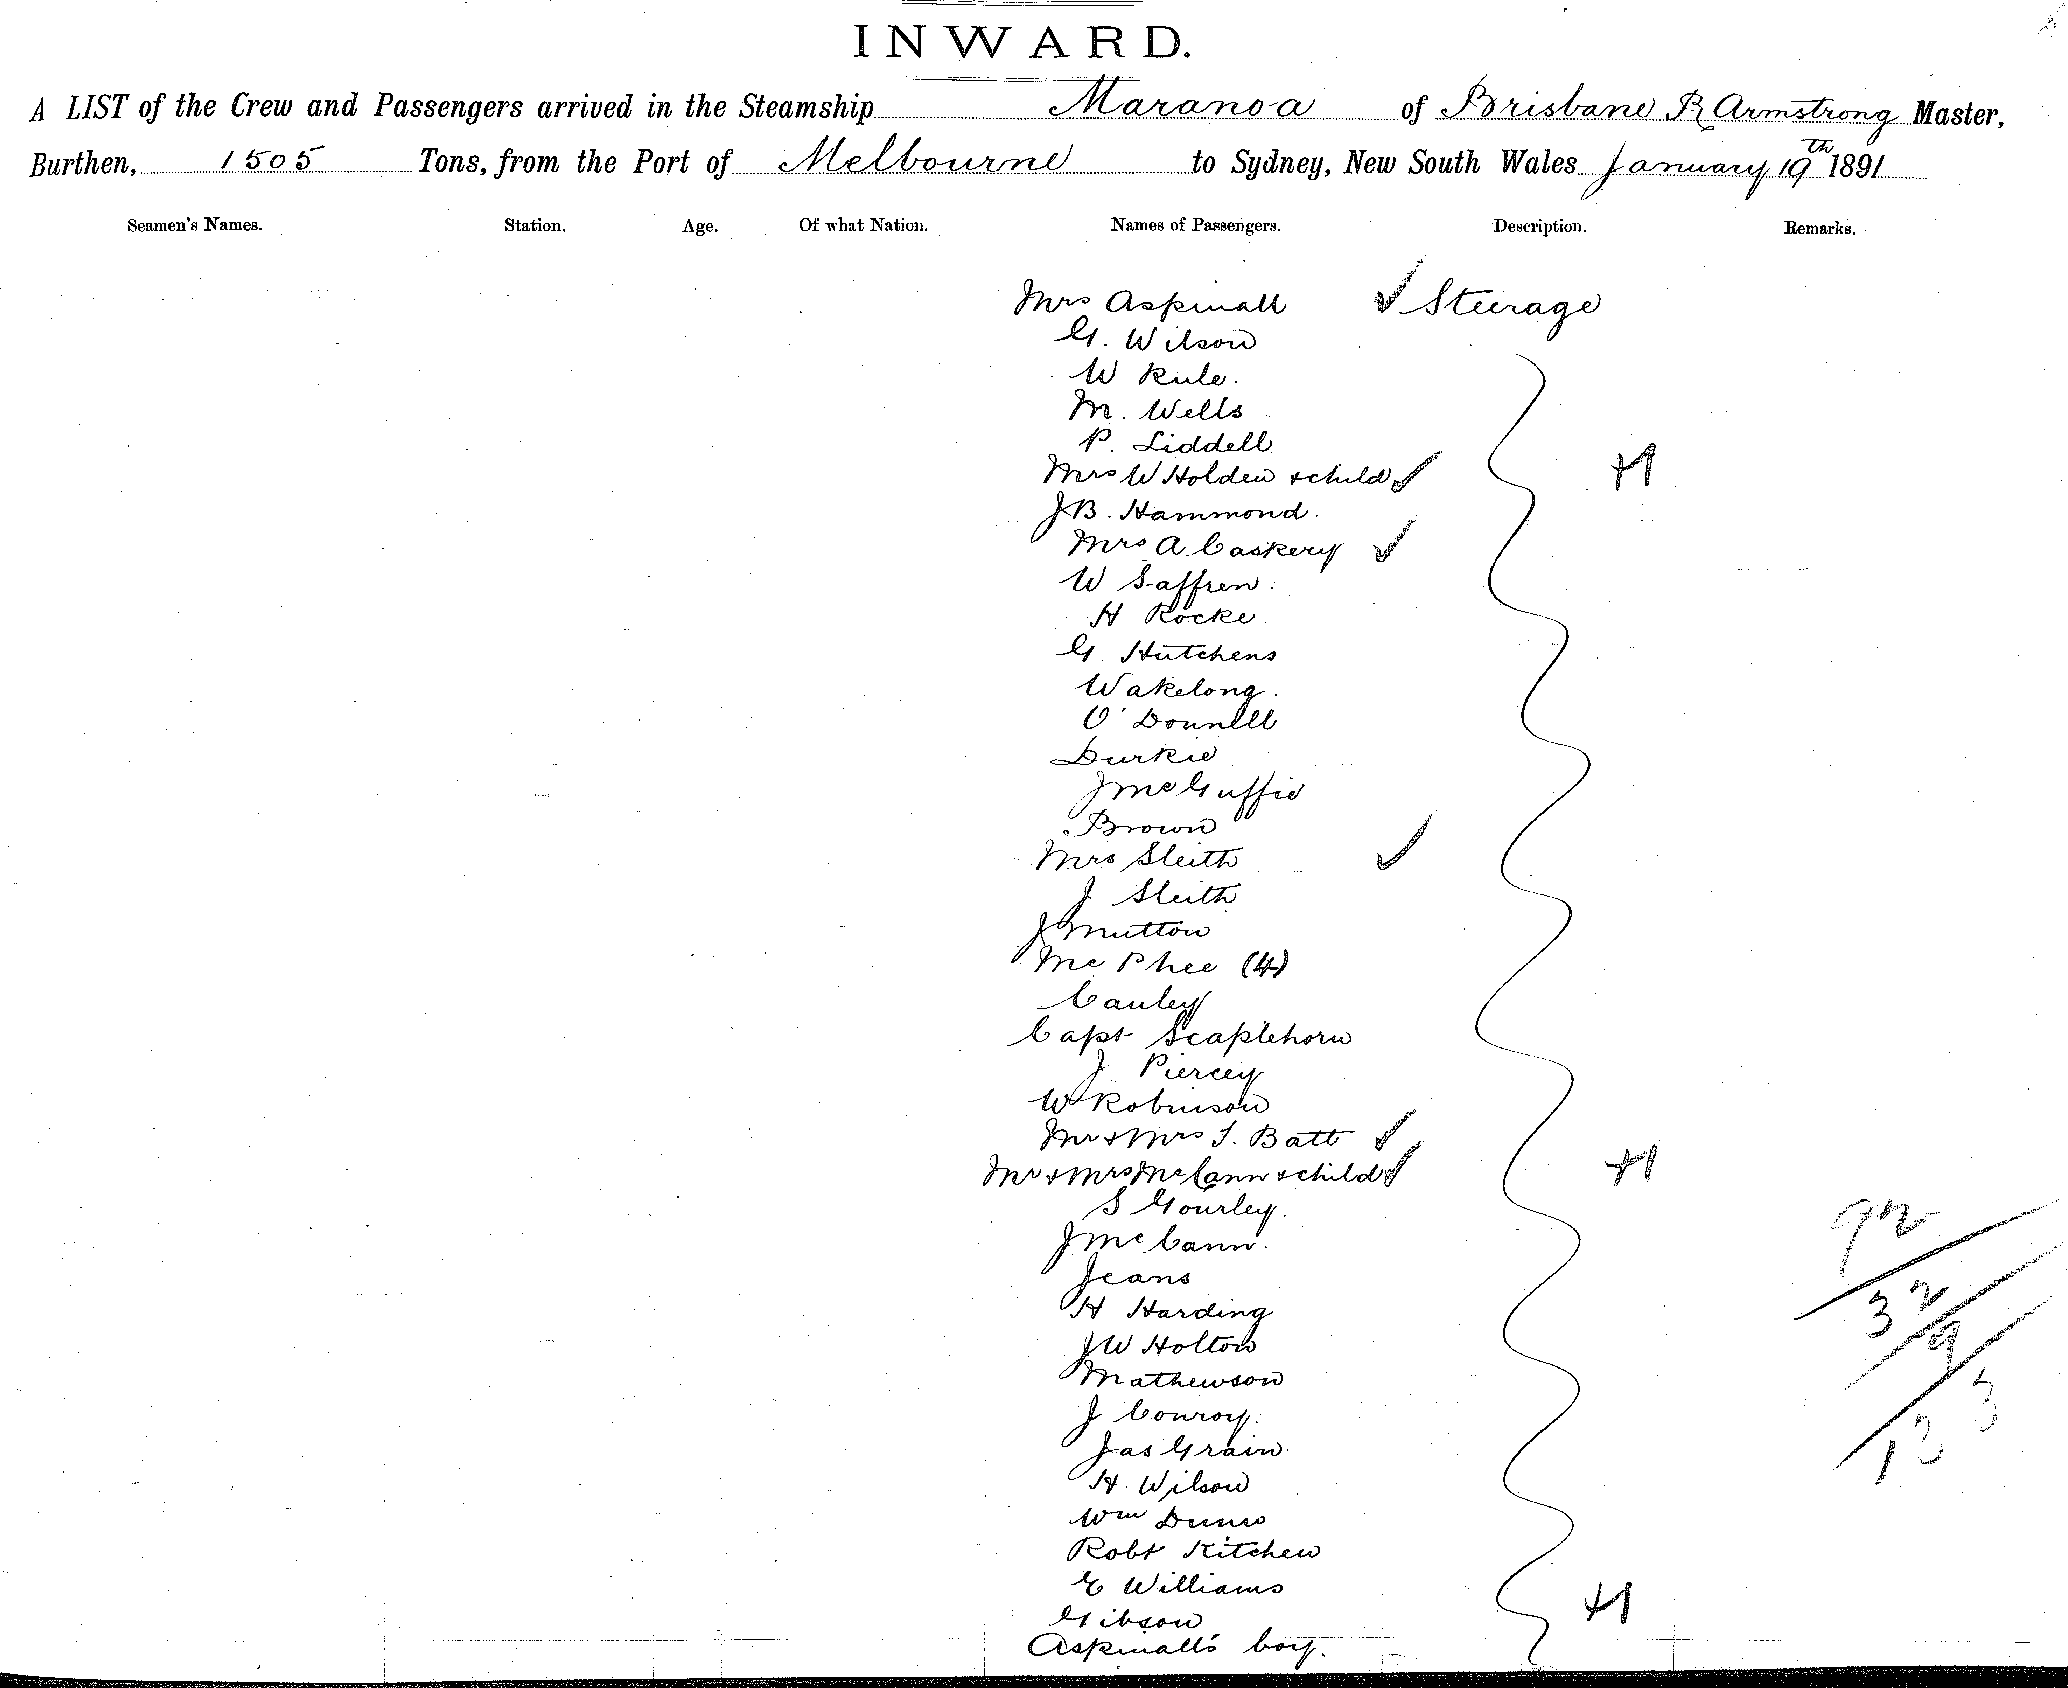 INWARD.
A LIST of the Crew and Passengers arrived in the Steamship Maranoa of Brisbane R Armstrong Master,
Burthen, 1505 Tons, from the Port of Melbourne to Sydney, New South Wales January 19th 1891
Seamen's Names. Station. Age. Of what Nation. Names of Passengers. Description. Remarks.
Mrs Aspinall ✓ Steerage
G. Wilson
W Rule.
M. Wells
P. Liddell
Mrs W Holden + child ✓ +1
J B. Hammond.
Mrs A. Caskery ✓
W Saffren.
H Rocke
G. Hutchens
Wakelong.
O'Donnell
Durkie
J McGuffie
Brown
Mrs Sleith ✓
J Sleith
J Mutton
McPhee (4)
Cauley
Capt Scaplehorn
J Piercey
W Robinson
Mr + Mrs S. Batt ✓
Mr + Mrs McCann + child ✓ +1
S Gourley.
J McCann.
Jeans
H Harding
J W Holton
Mathewson
J Conroy.
Jas Grain
H. Wilson
Wm Dunn
Robt Kitchen
E Williams
Gibson +1
Aspinall's boy.
92
32
9
133